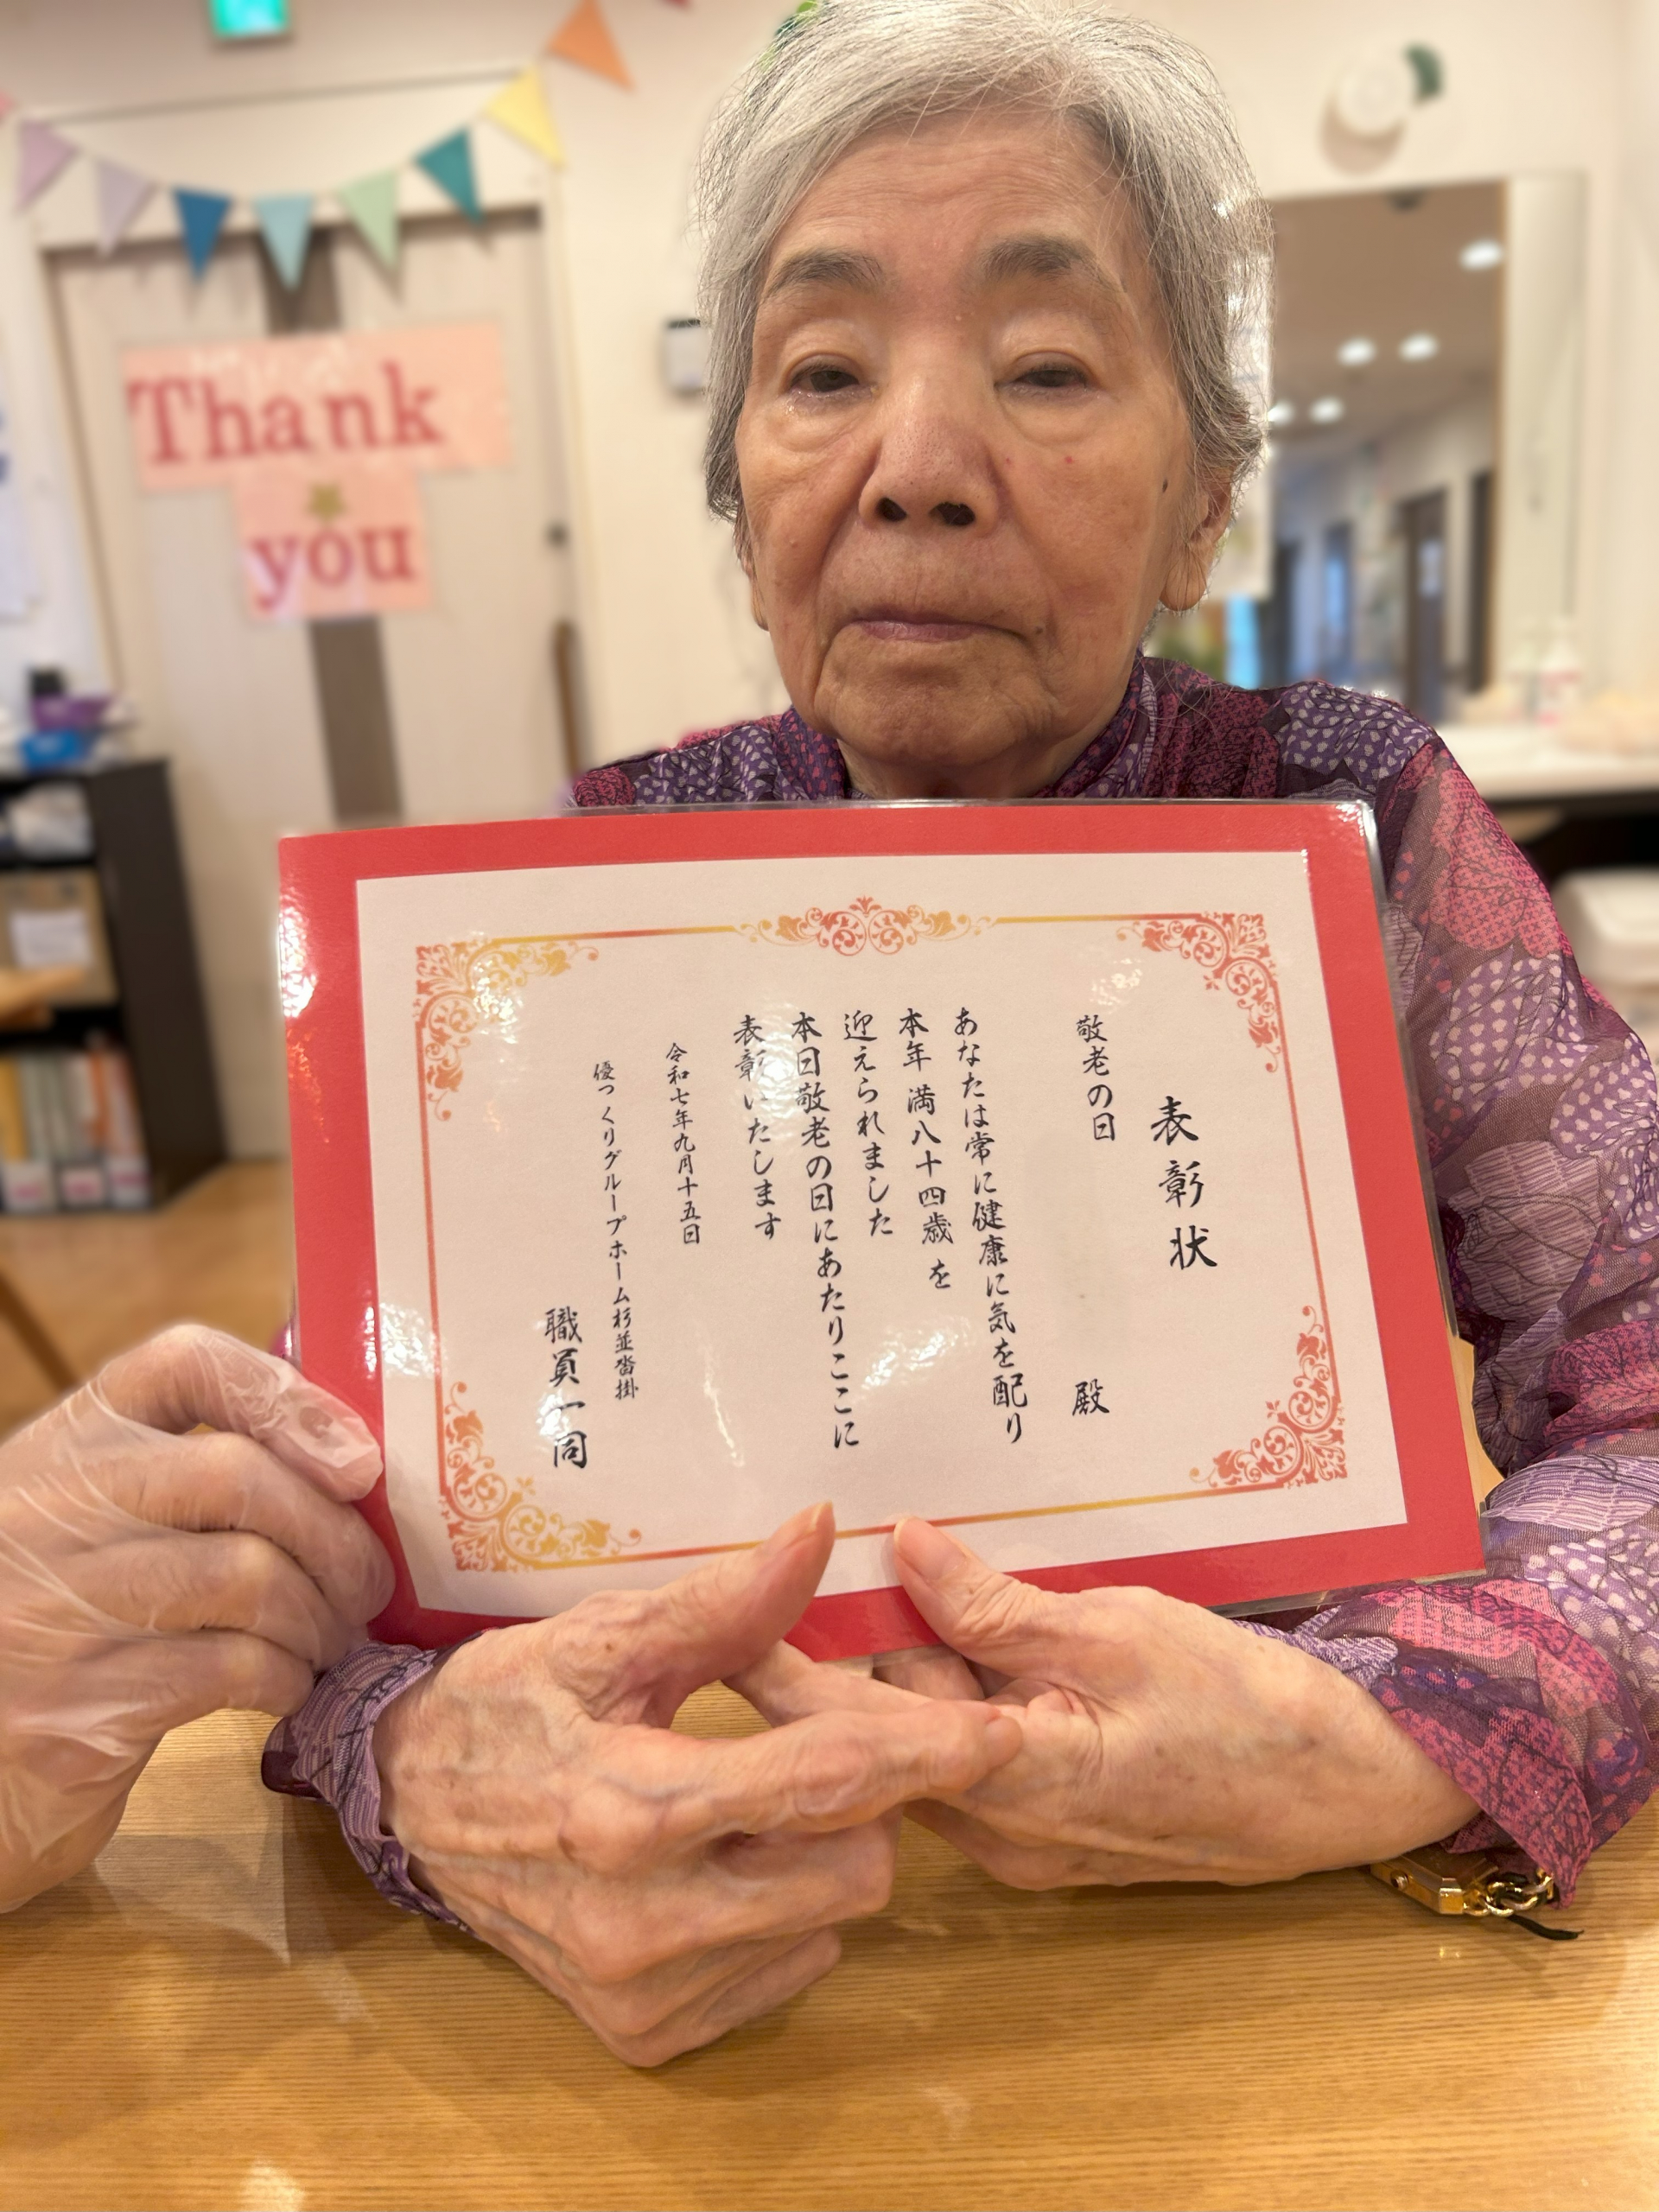 Thank
you
表彰状
敬老の日
殿
あなたは常に健康に気を配り
本年 満八十四歳 を
迎えられました
本日敬老の日にあたりここに
表彰いたします
令和七年九月十五日
優っくりグループホーム杉並沓掛
職員一同